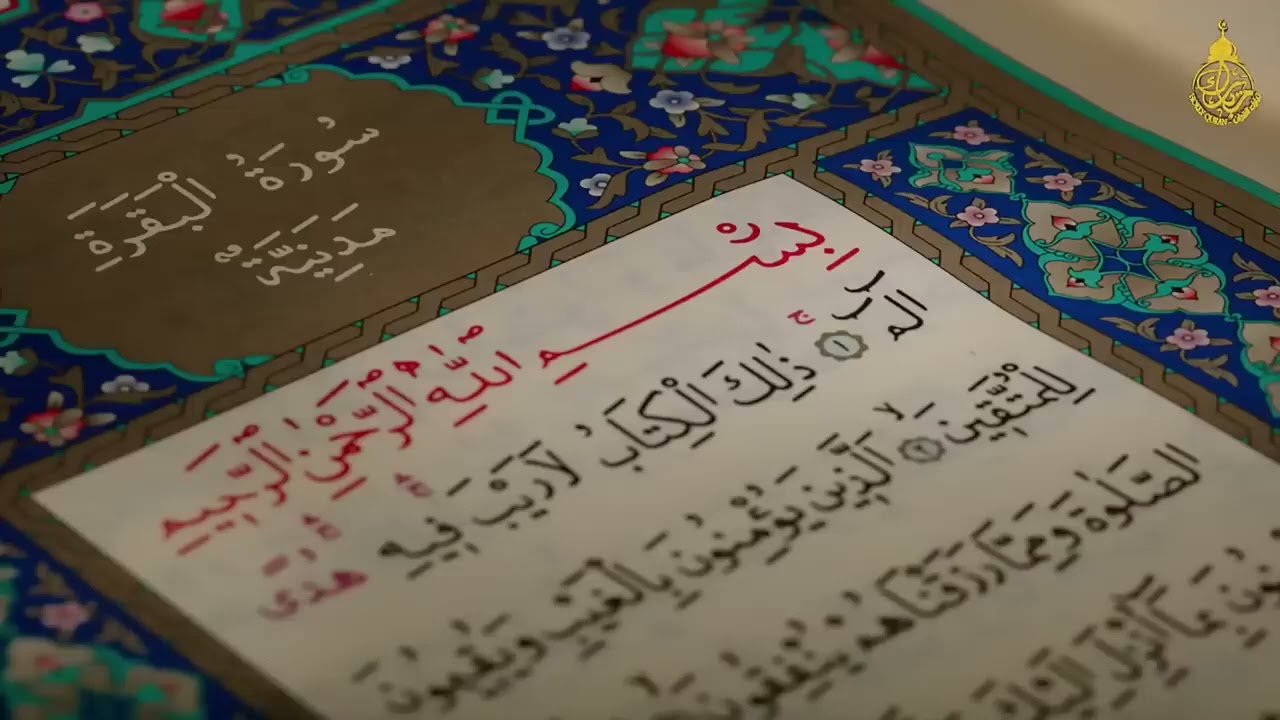 سُورَةُ الْبَقَرَةِ
مَدَنِيَّةٌ
بِسْمِ اللَّهِ الرَّحْمَٰنِ الرَّحِيمِ
الٓمٓ ۝١ ذَٰلِكَ الْكِتَابُ لَا رَيْبَ فِيهِ هُدًى
لِلْمُتَّقِينَ ۝٢ الَّذِينَ يُؤْمِنُونَ بِالْغَيْبِ وَيُقِيمُونَ
الصَّلَوٰةَ وَمِمَّا رَزَقْنَاهُمْ يُنْفِقُونَ
بِمَا أُنْزِلَ إِلَيْكَ